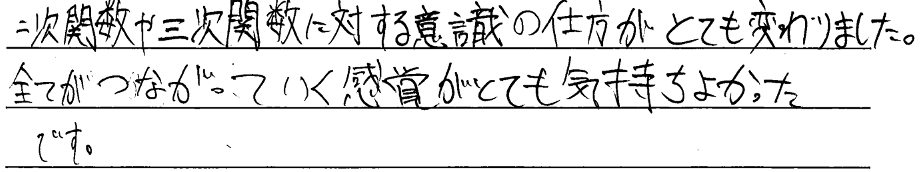 二次関数や三次関数に対する意識の仕方がとても変わりました。
全てがつながっていく感覚がとても気持ちよかった
です。